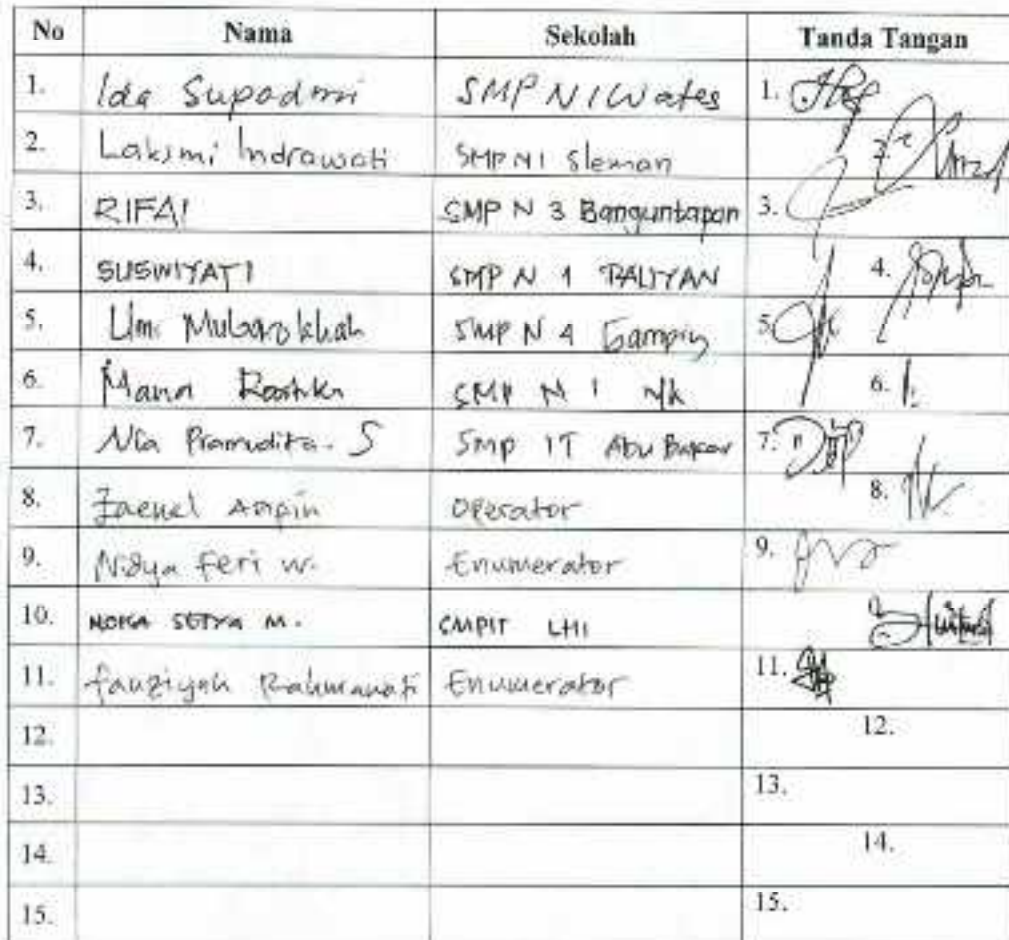 No Nama Sekolah Tanda Tangan
1. Ida Supadmi SMP N 1 Wates 1.
2. Laksmi Indrawati SMP N 1 Sleman 2.
3. RIFAI SMP N 3 Banguntapan 3.
4. SUSWIYATI SMP N 1 PALIYAN 4.
5. Umi Mubarokhah SMP N 4 Gamping 5.
6. SMP N 1 6.
7. Nia Pramudita. S SMP IT Abu Bakar 7.
8. Zaenal Aripin Operator 8.
9. Nidya Feri W. Enumerator 9.
10. SETYA M. SMPIT LHI
11. fauziyah Rahmawati Enumerator 11.
12. 12.
13. 13.
14. 14.
15. 15.